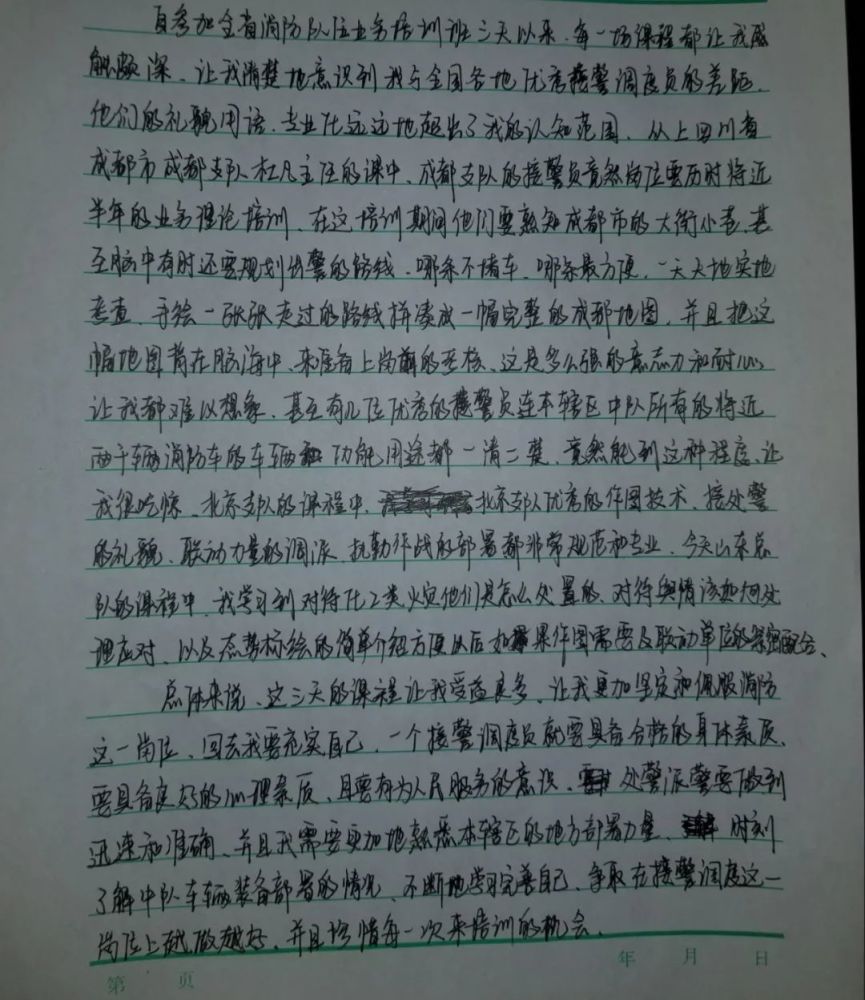 自参加全省消防队伍业务培训班三天以来，每一场课程都让我感
触颇深，让我清楚地意识到我与全国各地优秀接警调度员的差距，
他们的礼貌用语，专业化远远地超出了我的认知范围，从上四川省
成都市成都支队杜凡主任的课中，成都支队的接警员竟然岗位要历时将近
半年的业务理论培训，在这培训期间他们要熟知成都市的大街小巷，甚
至脑中有时还要规划出警的路线，哪条不堵车，哪条最方便，一天天地实地
考查，手绘一张张走过的路线拼凑成一幅完整的成都地图，并且把这
幅地图背在脑海中，来准备上岗前的考核，这是多么强的意志力和耐心
让我都难以想象，甚至有几位优秀的接警员连本辖区中队所有的将近
两千辆消防车的车辆和功能用途都一清二楚，竟然能到这种程度，让
我很吃惊，北京支队的课程中，北京支队优秀的作图技术，接处警
的礼貌，联动力量的调派，执勤作战的部署都非常规范和专业，今天山东总
队的课程中，我学习到对待化工类火灾他们是怎么处置的，对待舆情该如何处
理应对，以及态势标绘的简单介绍方便以后如果作图需要及联动单位的配合、
总体来说，这三天的课程让我受益良多，让我更加坚定和佩服消防
这一岗位，回去我要充实自己，一个接警调度员就要具备合格的身体素质，
要具备良好的心理素质，且要有为人民服务的意识，处警派警要做到
迅速和准确，并且我需要更加地熟悉本辖区的地方部署力量，时刻
了解中队车辆装备部署的情况，不断地学习完善自己，争取在接警调度这一
岗位上越做越好，并且珍惜每一次来培训的机会。
年 月 日
第 页